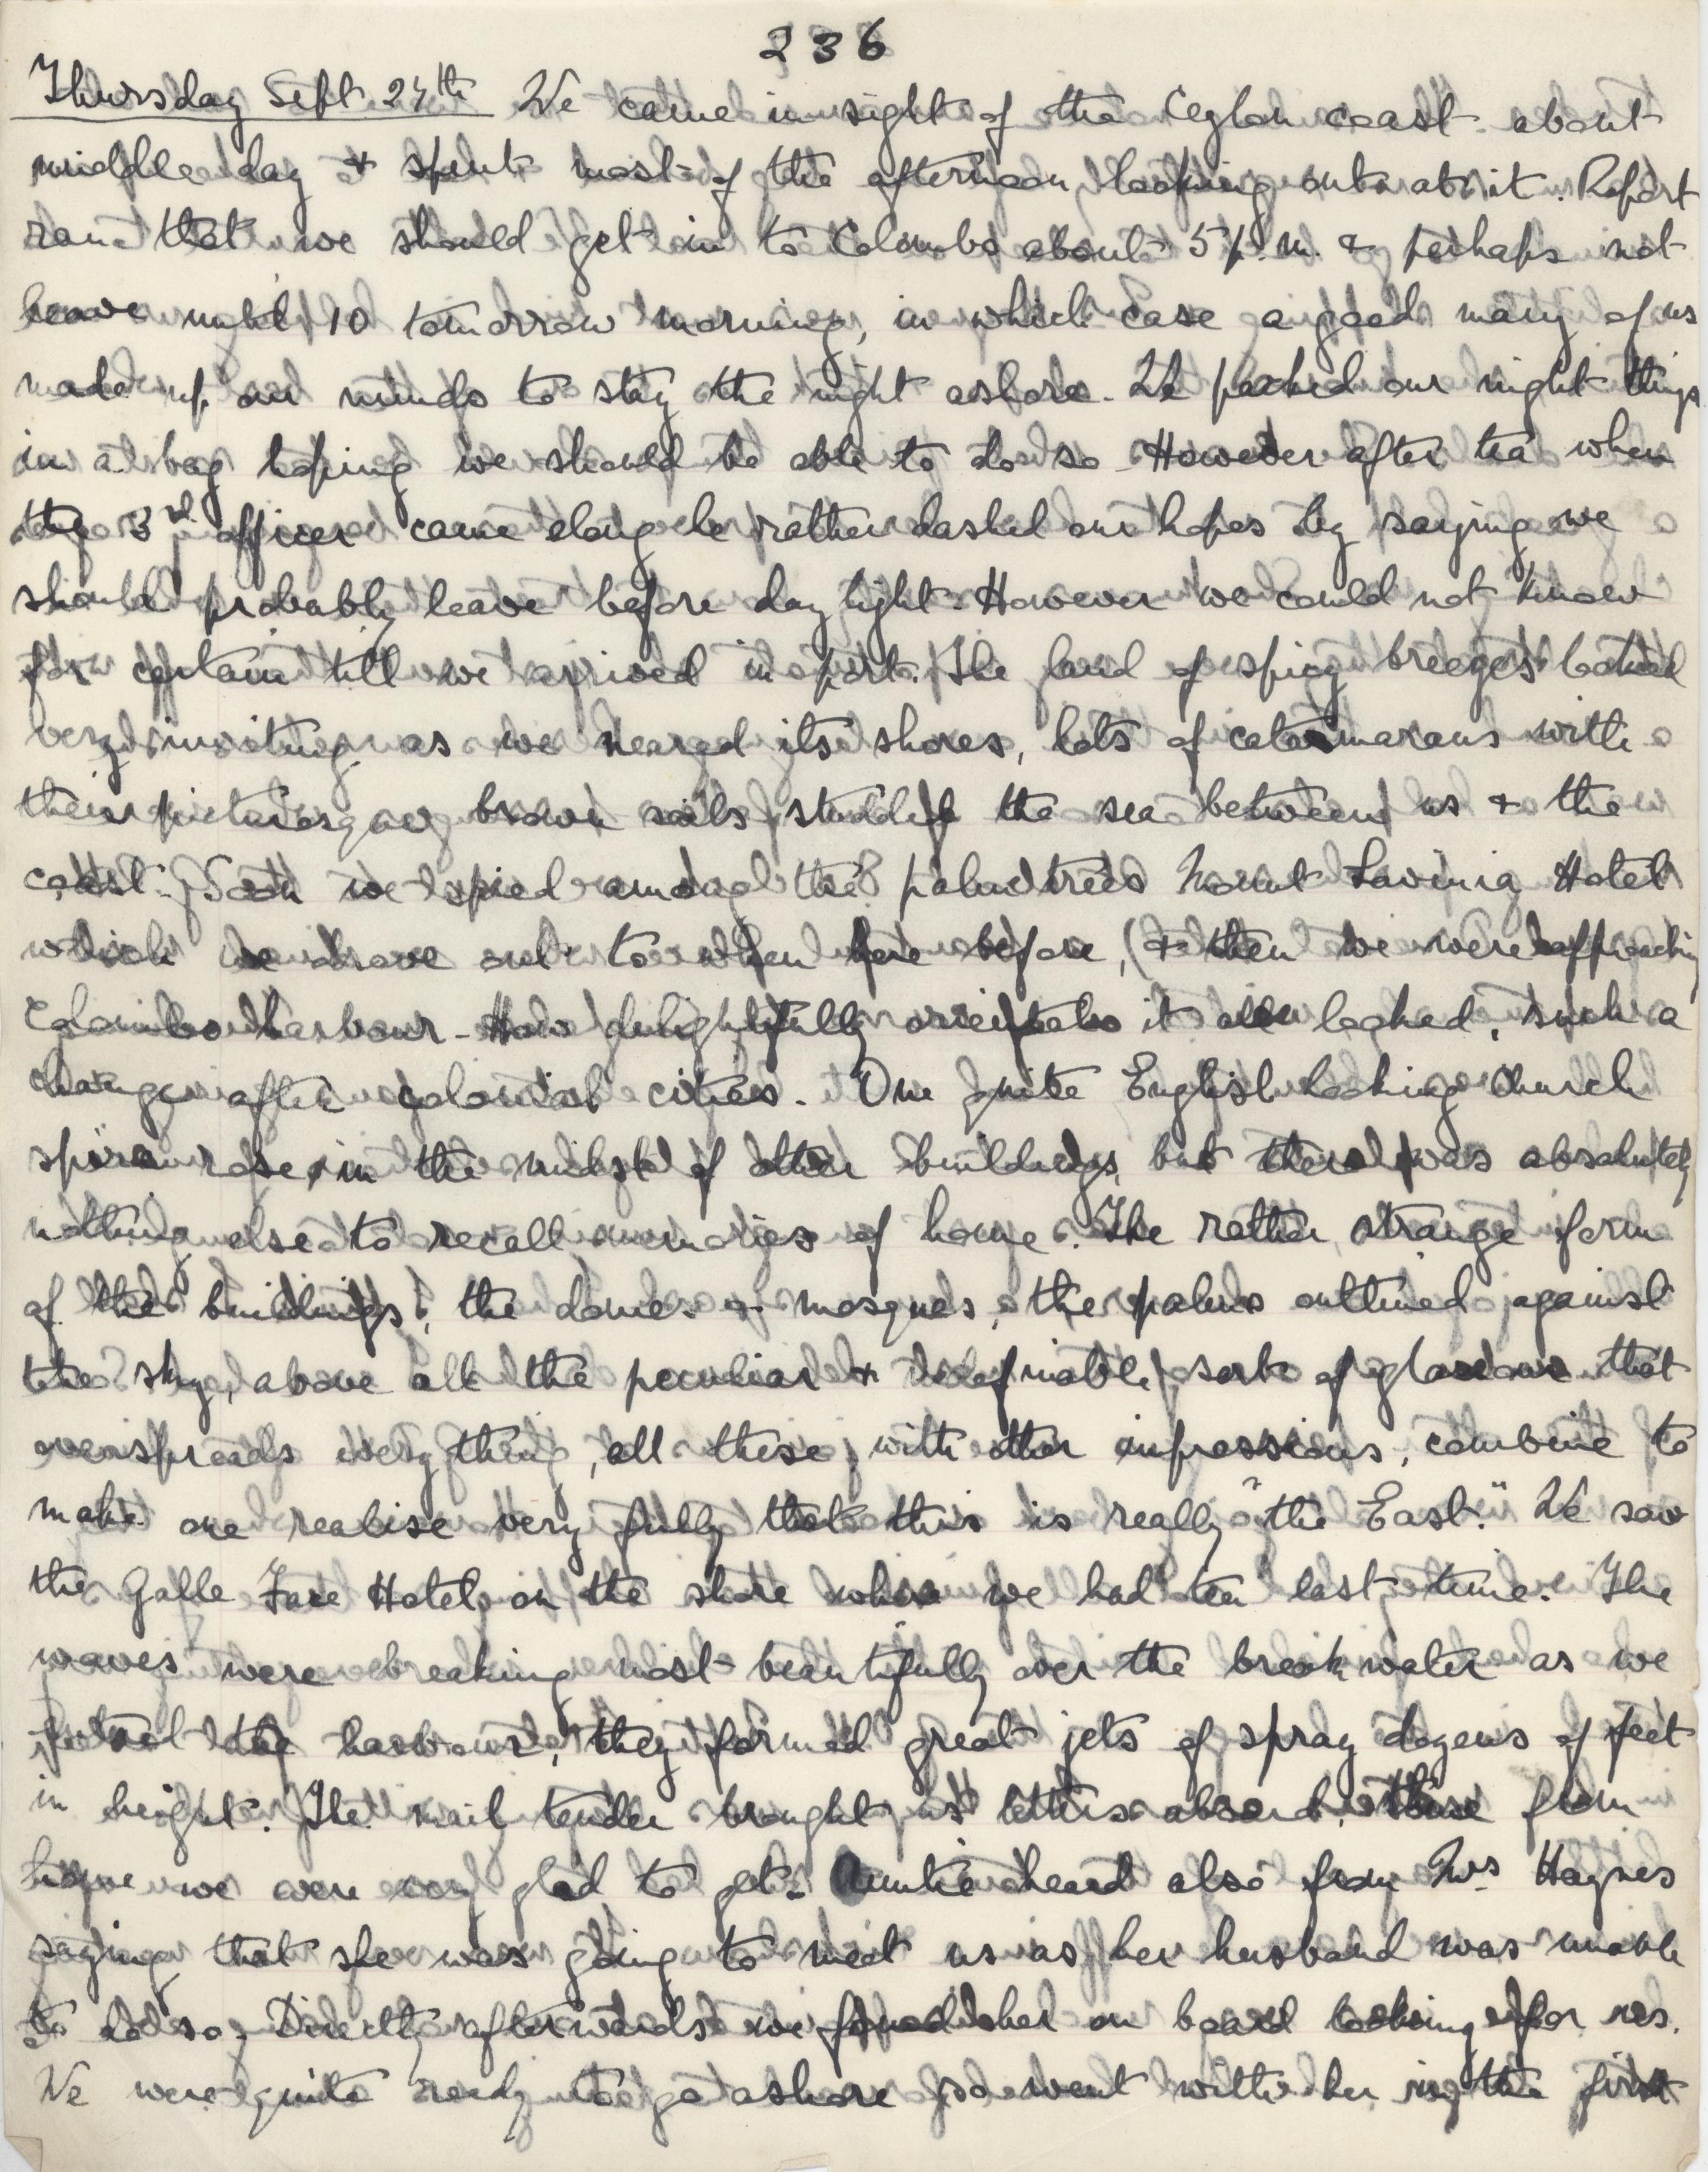 236
Thursday Sept 24th We came in sight of the Ceylon coast about
middle day & spent most of the afternoon looking out at it. Report
ran that we should get in to Colombo about 5 p.m. & perhaps not
leave until 10 tomorrow morning, in which case a good many of us
made up our minds to stay the night ashore. We packed our night things
in a bag hoping we should be able to do so. However after tea when
the 3rd officer came along he rather dashed our hopes by saying we
should probably leave before daylight. However we could not know
for certain till we arrived in port. The land of spicy breezes looked
very inviting as we neared its shores, lots of catamarans with
their picturesque brown sails studded the sea between us & the
coast. Soon we spied among the palm trees Mount Lavinia Hotel
which we drove out to when here before, & then we were approaching
Colombo harbour. How delightfully oriental it all looked, such a
change after colonial cities. One quite English looking church
spire rose in the midst of other buildings, but there was absolutely
nothing else to recall memories of home. The rather strange form
of the buildings, the domes & mosques, the palms outlined against
the sky, above all the peculiar & indefinable sort of glamour that
overspreads everything, all these, with other impressions, combine to
make one realise very fully that this is really "the East." We saw
the Galle Face Hotel on the shore where we had tea last time. The
waves were breaking most beautifully over the breakwater as we
entered the harbour, they formed great jets of spray dozens of feet
in height. The mail tender brought us letters aboard, those from
home we were very glad to get. Auntie heard also from Mrs Haynes
saying that she was going to meet us as her husband was unable
to do so. Directly afterwards we found her on board looking for us.
We were quite ready to go ashore so went with her in the first